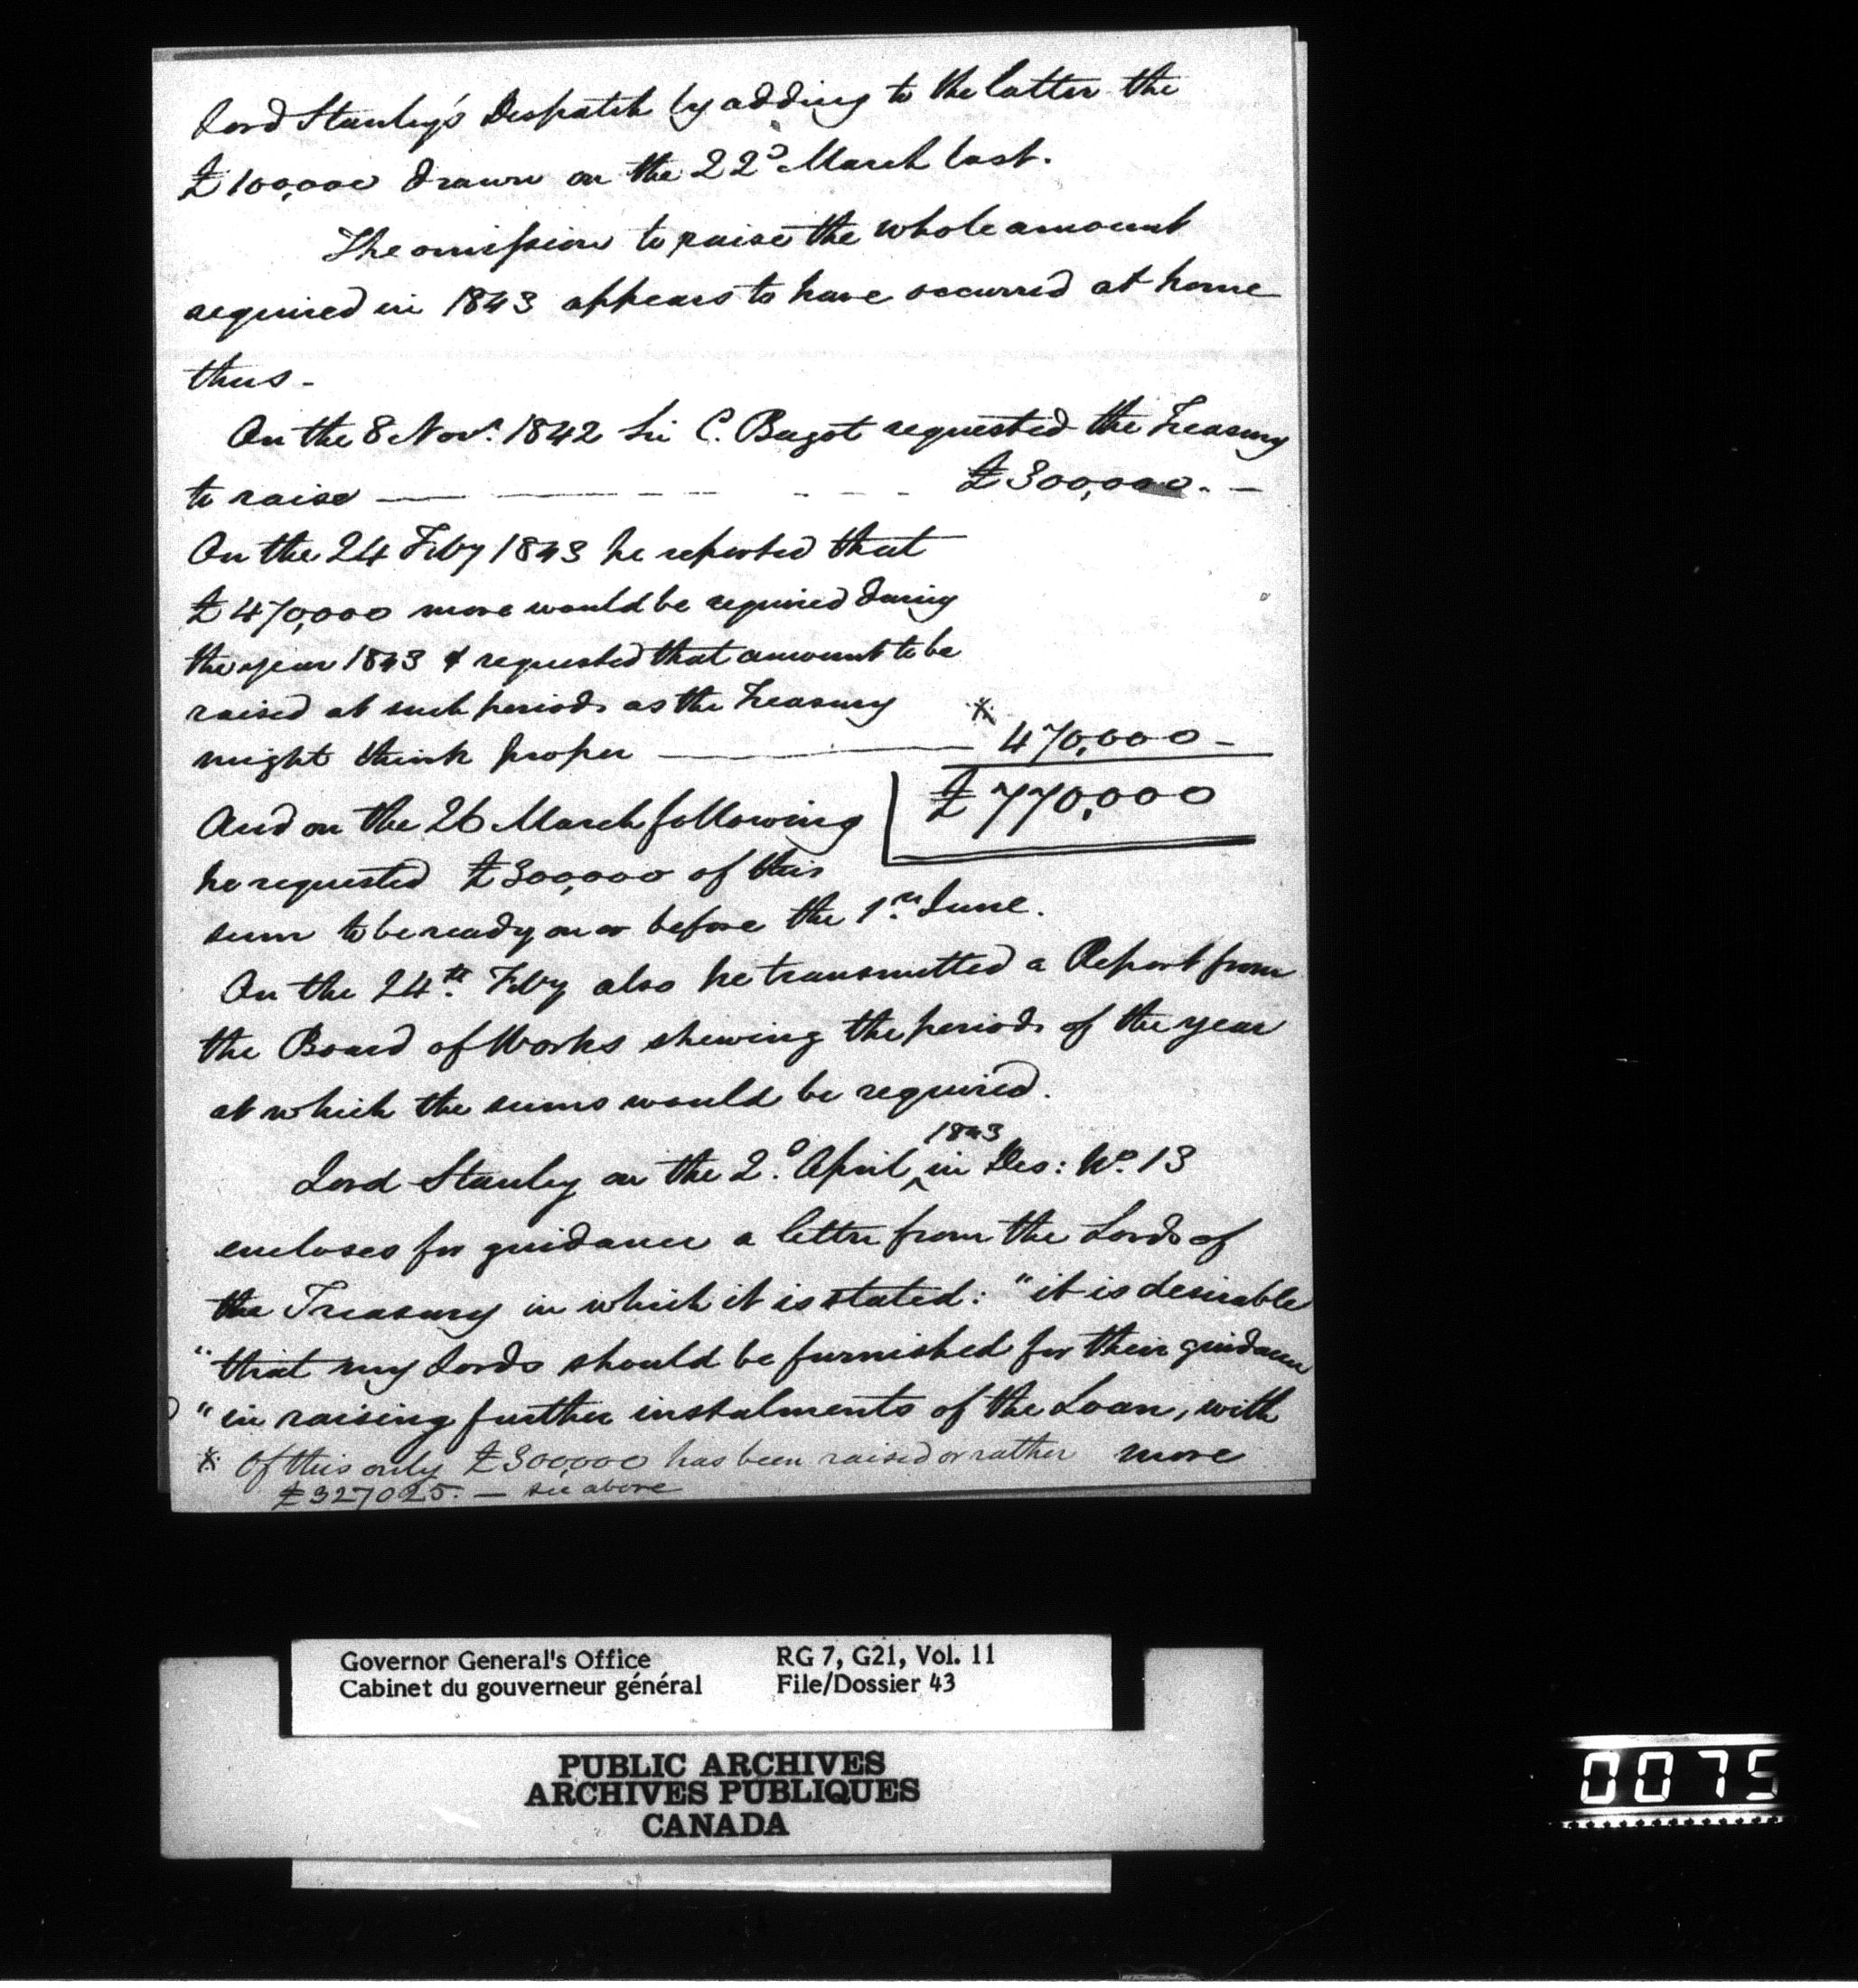 Lord Stanley's Despatch by adding to the latter the
£100,000 drawn on the 22d March last.
The omission to raise the whole amount
required in 1843 appears to have occurred at home
thus -
On the 8 Novr. 1842 Sir C. Bagot requested the Treasury
to raise — £300,000. -
On the 24 Feby 1843 he reported that
£470,000 more would be required during
the year 1843 & requested that amount to be
raised at such periods as the Treasury
might think proper — * 470,000 -
£770,000
And on the 26 March following
he requested £300,000 of this
sum to be ready on or before the 1st June.
On the 24th. Feby also he transmitted a Report from
the Board of Works shewing the periods of the year
at which the sums would be required.
Lord Stanley on the 2d. April ^ 1843 in Des: No. 13
encloses for guidance a letter from the Lords of
the Treasury in which it is stated: "it is desirable
"that my Lords should be furnished for their guidance
"in raising further instalments of the Loan, with
more
* Of this only £300,000 has been raised or rather
£327025. — see above
Governor General's Office
Cabinet du gouverneur général
RG 7, G21, Vol. 11
File/Dossier 43
PUBLIC ARCHIVES
ARCHIVES PUBLIQUES
CANADA
0075